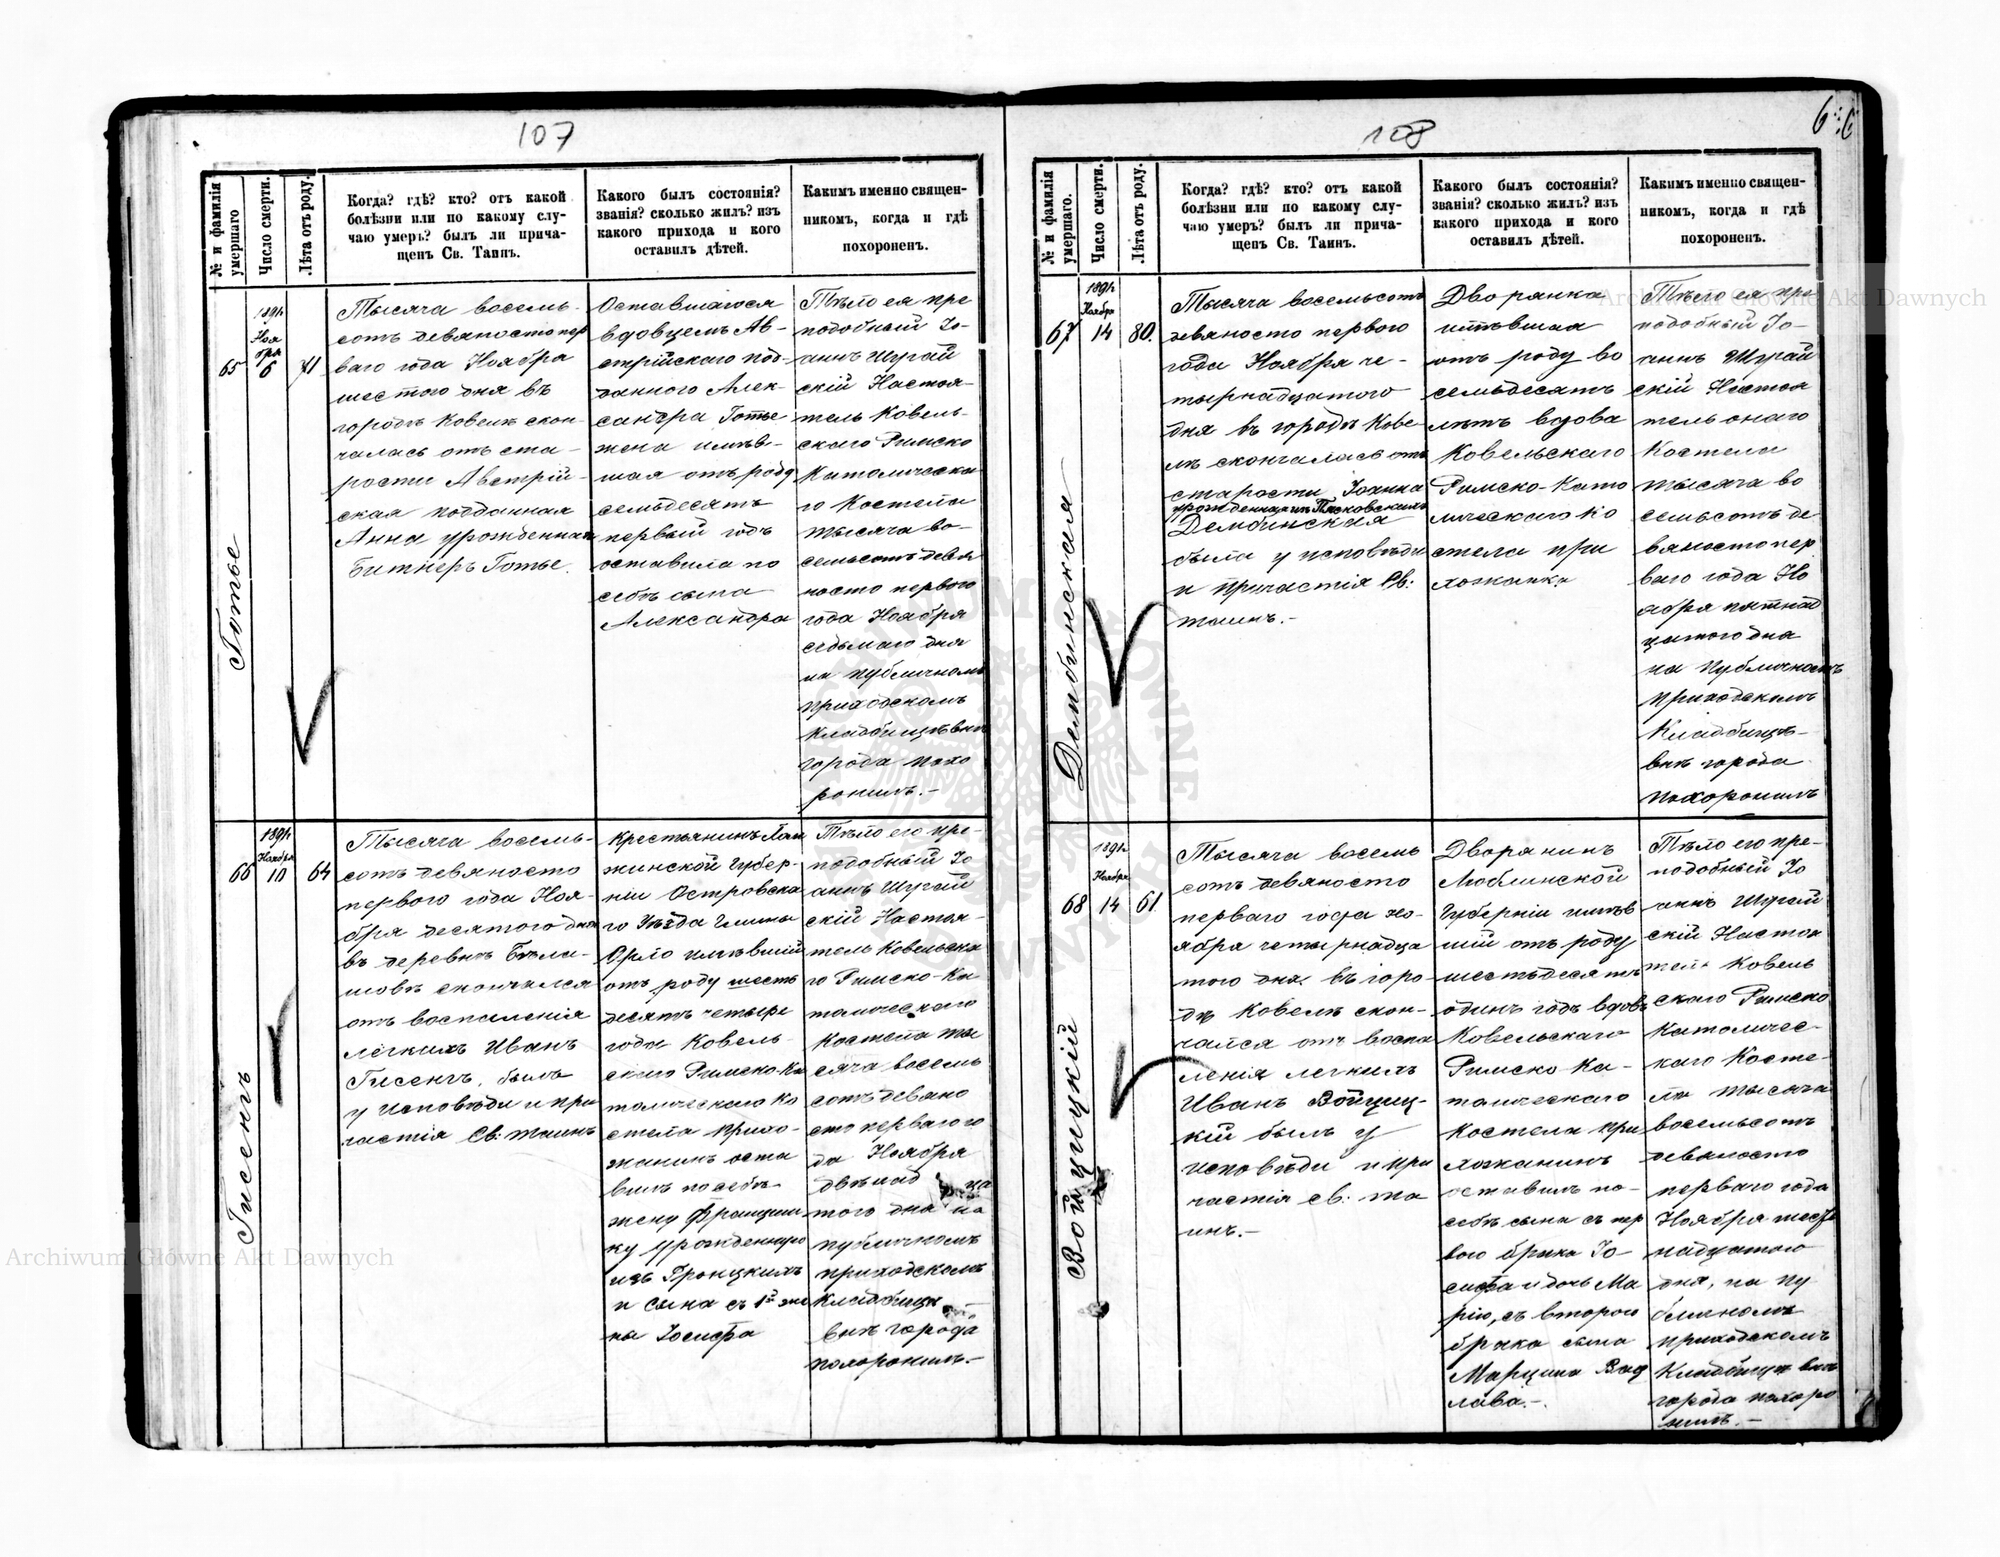 107
№ и фамилія умершаго
Число смерти.
Лѣта отъ роду.
Когда? гдѣ? кто? отъ какой
болѣзни или по какому слу-
чаю умеръ? былъ ли прича-
щенъ Св. Таинъ.
Какого былъ состоянія?
званія? сколько жилъ? изъ
какого прихода и кого
оставилъ дѣтей.
Какимъ именно священ-
никомъ, когда и гдѣ
похороненъ.
65
Готье
1891
Ноя
бря
6
71
Тысяча восемь-
сотъ девяносто пер
ваго года Ноября
шестого дня въ
городѣ Ковелѣ скон-
чалась отъ ста-
рости Австрій-
ская подданная
Анна урожденная
Битнеръ Готье.
Оставшагося
вдовцемъ Ав-
стрійскаго под-
даннаго Алек-
сандра Готье
жена имѣв-
шая отъ роду
семьдесятъ
первый годъ
оставила по
себѣ сына
Александра
Тѣло ея пре
подобный Іо-
аннъ Шурай
скій Настоя-
тель Ковель-
скаго Римско
Католическа
го Костела
тысяча во-
семьсотъ девя
носто перваго
года Ноября
седьмаго дня
на публичномъ
приходскомъ
кладбищѣ внѣ
города похо
ронилъ.-
66
Гисенъ
1891
Ноября
10
64
Тысяча восемь-
сотъ девяносто
перваго года Ноя-
бря десятого дня
въ деревнѣ
скончался
отъ воспаленія
легкихъ Иванъ
Гисенъ, былъ
у исповѣди и при
частія Св: таинъ
Крестьянинъ Лом
жинской Губер-
ніи Островска
го Уѣзда Гмины
Орло имѣвшій
отъ роду шесть
десятъ четыре
года Ковель-
скаго Римско-Ка
толическаго Ко
стела прихо-
жанинъ оста
вилъ по себѣ
жену Францишк
ку урожденную
изъ Гроицкихъ
и сына съ 1й же
ны Іосифа
Тѣло его пре-
подобный Іо
аннъ Шурай
скій Настоя-
тель Ковельска
го Римско-Ка
толическаго
Костела ты
сяча восемь
сотъ девяно
сто перваго го
да Ноября
двѣнадца
того дня на
публичномъ
приходскомъ
кладбищѣ
внѣ города
похоронилъ.-
108
№ и фамилія умершаго.
Число смерти.
Лѣта отъ роду.
Когда? гдѣ? кто? отъ какой
болѣзни или по какому слу-
чаю умеръ? былъ ли прича-
щенъ Св. Таинъ.
Какого былъ состоянія?
званія? сколько жилъ? изъ
какого прихода и кого
оставилъ дѣтей.
Какимъ именно священ-
никомъ, когда и гдѣ
похороненъ.
67
Дембинская
1891
Ноября
14
80.
Тысяча восемьсотъ
девяносто перваго
года Ноября че-
тырнадцатого
дня въ городѣ Кове-
лѣ скончалась отъ
старости Іоанна
урожденная изъ Пясковскихъ
Дембинская
была у исповѣди
и причастія Св:
таинъ.-
Дворянка
имѣвшая
отъ роду во
семьдесятъ
лѣтъ вдова
Ковельскаго
Римско-Като
лическаго Ко
стела при
хожанка
Тѣло ея пре
подобный Іо-
аннъ Шурай
скій Настоя
тель онаго
Костела
тысяча во
семьсотъ де-
вяносто пер
ваго года Но
ября пятнад
цатого дня
на публичномъ
приходскомъ
кладбищѣ-
внѣ города
похоронилъ
68
Войцицкій
1891
Ноября
14
61
Тысяча восемь
сотъ девяносто
перваго года Но-
ября четырнадца
того дня въ горо-
дѣ Ковелѣ скон-
чался отъ воспа
ленія легкихъ
Иванъ Войциц-
кій былъ у
исповѣди и при
частія св: та
инъ.-
Дворянинъ
Люблинской
Губерніи имѣв
шій отъ роду
шестьдесятъ
одинъ годъ вдовъ
Ковельскаго
Римско Ка-
толическаго
Костела при
хожанинъ
оставилъ по-
себѣ сына съ пер
вого брака Іо-
сифа и дочь Ма
рію, съ второго
брака сына
Марцина Вац
лава.-
Тѣло его пре-
подобный Іо
аннъ Шурай
скій Настоя
тель Ковель
скаго Римско
Католичес-
каго Косте-
ла тысяча
восемьсотъ
девяносто
перваго года
Ноября шест
надцатого
дня, на пу
бличномъ
приходскомъ
кладбищѣ внѣ
города похоро
нилъ.-
Archiwum Główne Akt Dawnych
Archiwum Główne Akt Dawnych